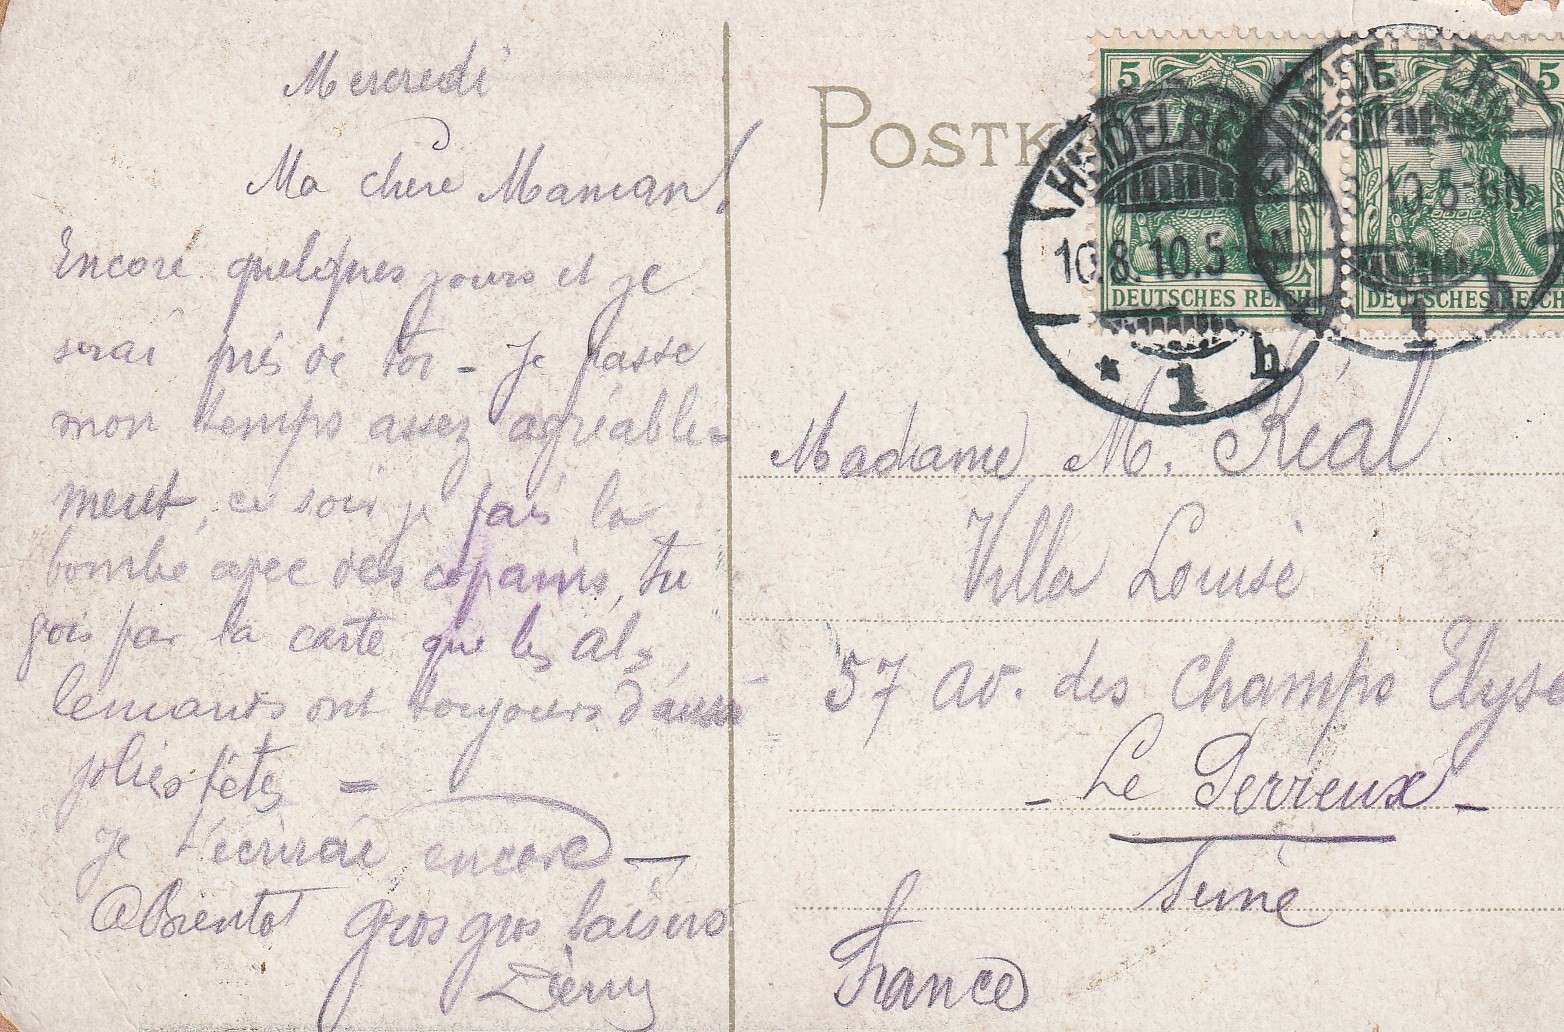 Mercredi
Ma chère Maman!
Encore quelques jours et je
serai près de toi - Je passe
mon temps assez agréable=
ment, ce soir je fais la
bombe avec des copains, tu
vois par la carte que les Al=
lemands ont toujours d'aussi
jolies fêtes =
Je t'écrirai encore —
A Bientot gros gros baisers
POSTK
5
5
5
DEUTSCHES REICH
DEUTSCHES REICH
HEIDELBERG
10.8.10.5-6N
* 1 h
HEIDELBERG
10.5-6N
1 h
Madame M. Réal
Villa Louise
57 av. des Champs Elysé
- Le Perreux -
Seine
France